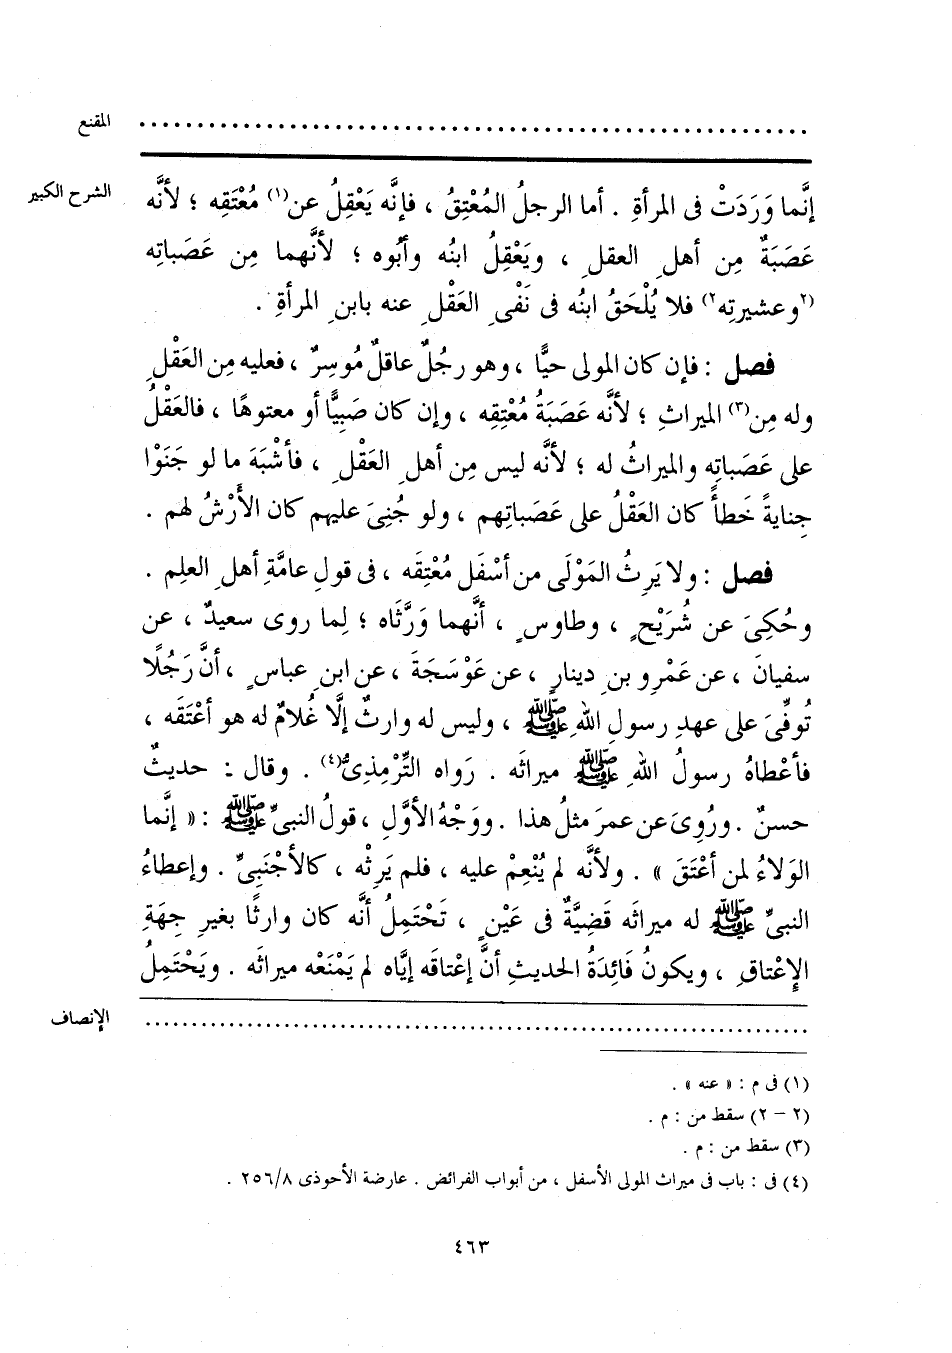 المقنع ................................................................
الشرح الكبير
إنَّما وَرَدَتْ فى المرأةِ . أما الرجلُ المُعْتِقُ ، فإنَّه يَعْقِلُ عن(١) مُعْتَقِه ؛ لأنَّه
عَصَبَةٌ مِن أهلِ العقلِ ، ويَعْقِلُ ابنُه وأبُوه ؛ لأنَّهما مِن عَصَباتِه
(٢وعشيرتِه٢) فلا يُلْحَقُ ابنُه فى نَفْىِ العَقْلِ عنه بابنِ المرأةِ .
فصل : فإن كان المولى حيًّا ، وهو رجُلٌ عاقلٌ مُوسِرٌ ، فعليه مِن العَقْلِ
وله مِن(٣) الميراثِ ؛ لأنَّه عَصَبَةُ مُعْتَقِه ، وإن كان صَبِيًّا أو معتوهًا ، فالعَقْلُ
على عَصَباتِه والميراثُ له ؛ لأنَّه ليس مِن أهلِ العَقْلِ ، فأشْبَهَ ما لو جَنَوْا
جِنايةً خَطأً كان العَقْلُ على عَصَباتِهم ، ولو جُنِىَ عليهم كان الأَرْشُ لهم .
فصل : ولا يَرِثُ المَوْلَى من أسْفَل مُعْتِقَه ، فى قولِ عامَّةِ أهلِ العلِم .
وحُكِىَ عن شُرَيْحٍ ، وطاوسٍ ، أنَّهما وَرَّثَاه ؛ لِما روى سعيدٌ ، عن
سفيانَ ، عن عَمْرِو بنِ دينارٍ ، عن عَوْسَجَةَ ، عن ابنِ عباسٍ ، أنَّ رَجُلًا
تُوفِّىَ على عهدِ رسولِ اللهِ ﷺ ، وليس له وارثٌ إلَّا غُلامٌ له هو أعْتَقَه ،
فأعْطاهُ رسولُ اللهِ ﷺ ميراثَه . رَواه التِّرْمِذِىُّ(٤) . وقال : حديثٌ
حسنٌ . ورُوِىَ عن عمرَ مثلُ هذا . ووَجْهُ الأوَّلِ ، قولُ النبىِّ ﷺ : « إنَّما
الوَلاءُ لمن أعْتَقَ » . ولأنَّه لم يُنْعِمْ عليه ، فلم يَرِثْه ، كالأجْنَبِىِّ . وإعطاءُ
النبىِّ ﷺ له ميراثَه قَضِيَّةٌ فى عَيْنٍ ، تَحْتَمِلُ أنَّه كان وارثًا بغيرِ جِهَةِ
الإعْتاقِ ، ويكونُ فَائِدَةُ الحديثِ أنَّ إعْتاقَه إيَّاه لم يَمْنَعْه ميراثَه . ويَحْتَمِلُ
الإنصاف ................................................................
(١) فى م : « عنه » .
(٢ - ٢) سقط من : م .
(٣) سقط من : م .
(٤) فى : باب فى ميراث المولى الأسفل ، من أبواب الفرائض . عارضة الأحوذى ٨/ ٢٥٦ .
٤٦٣